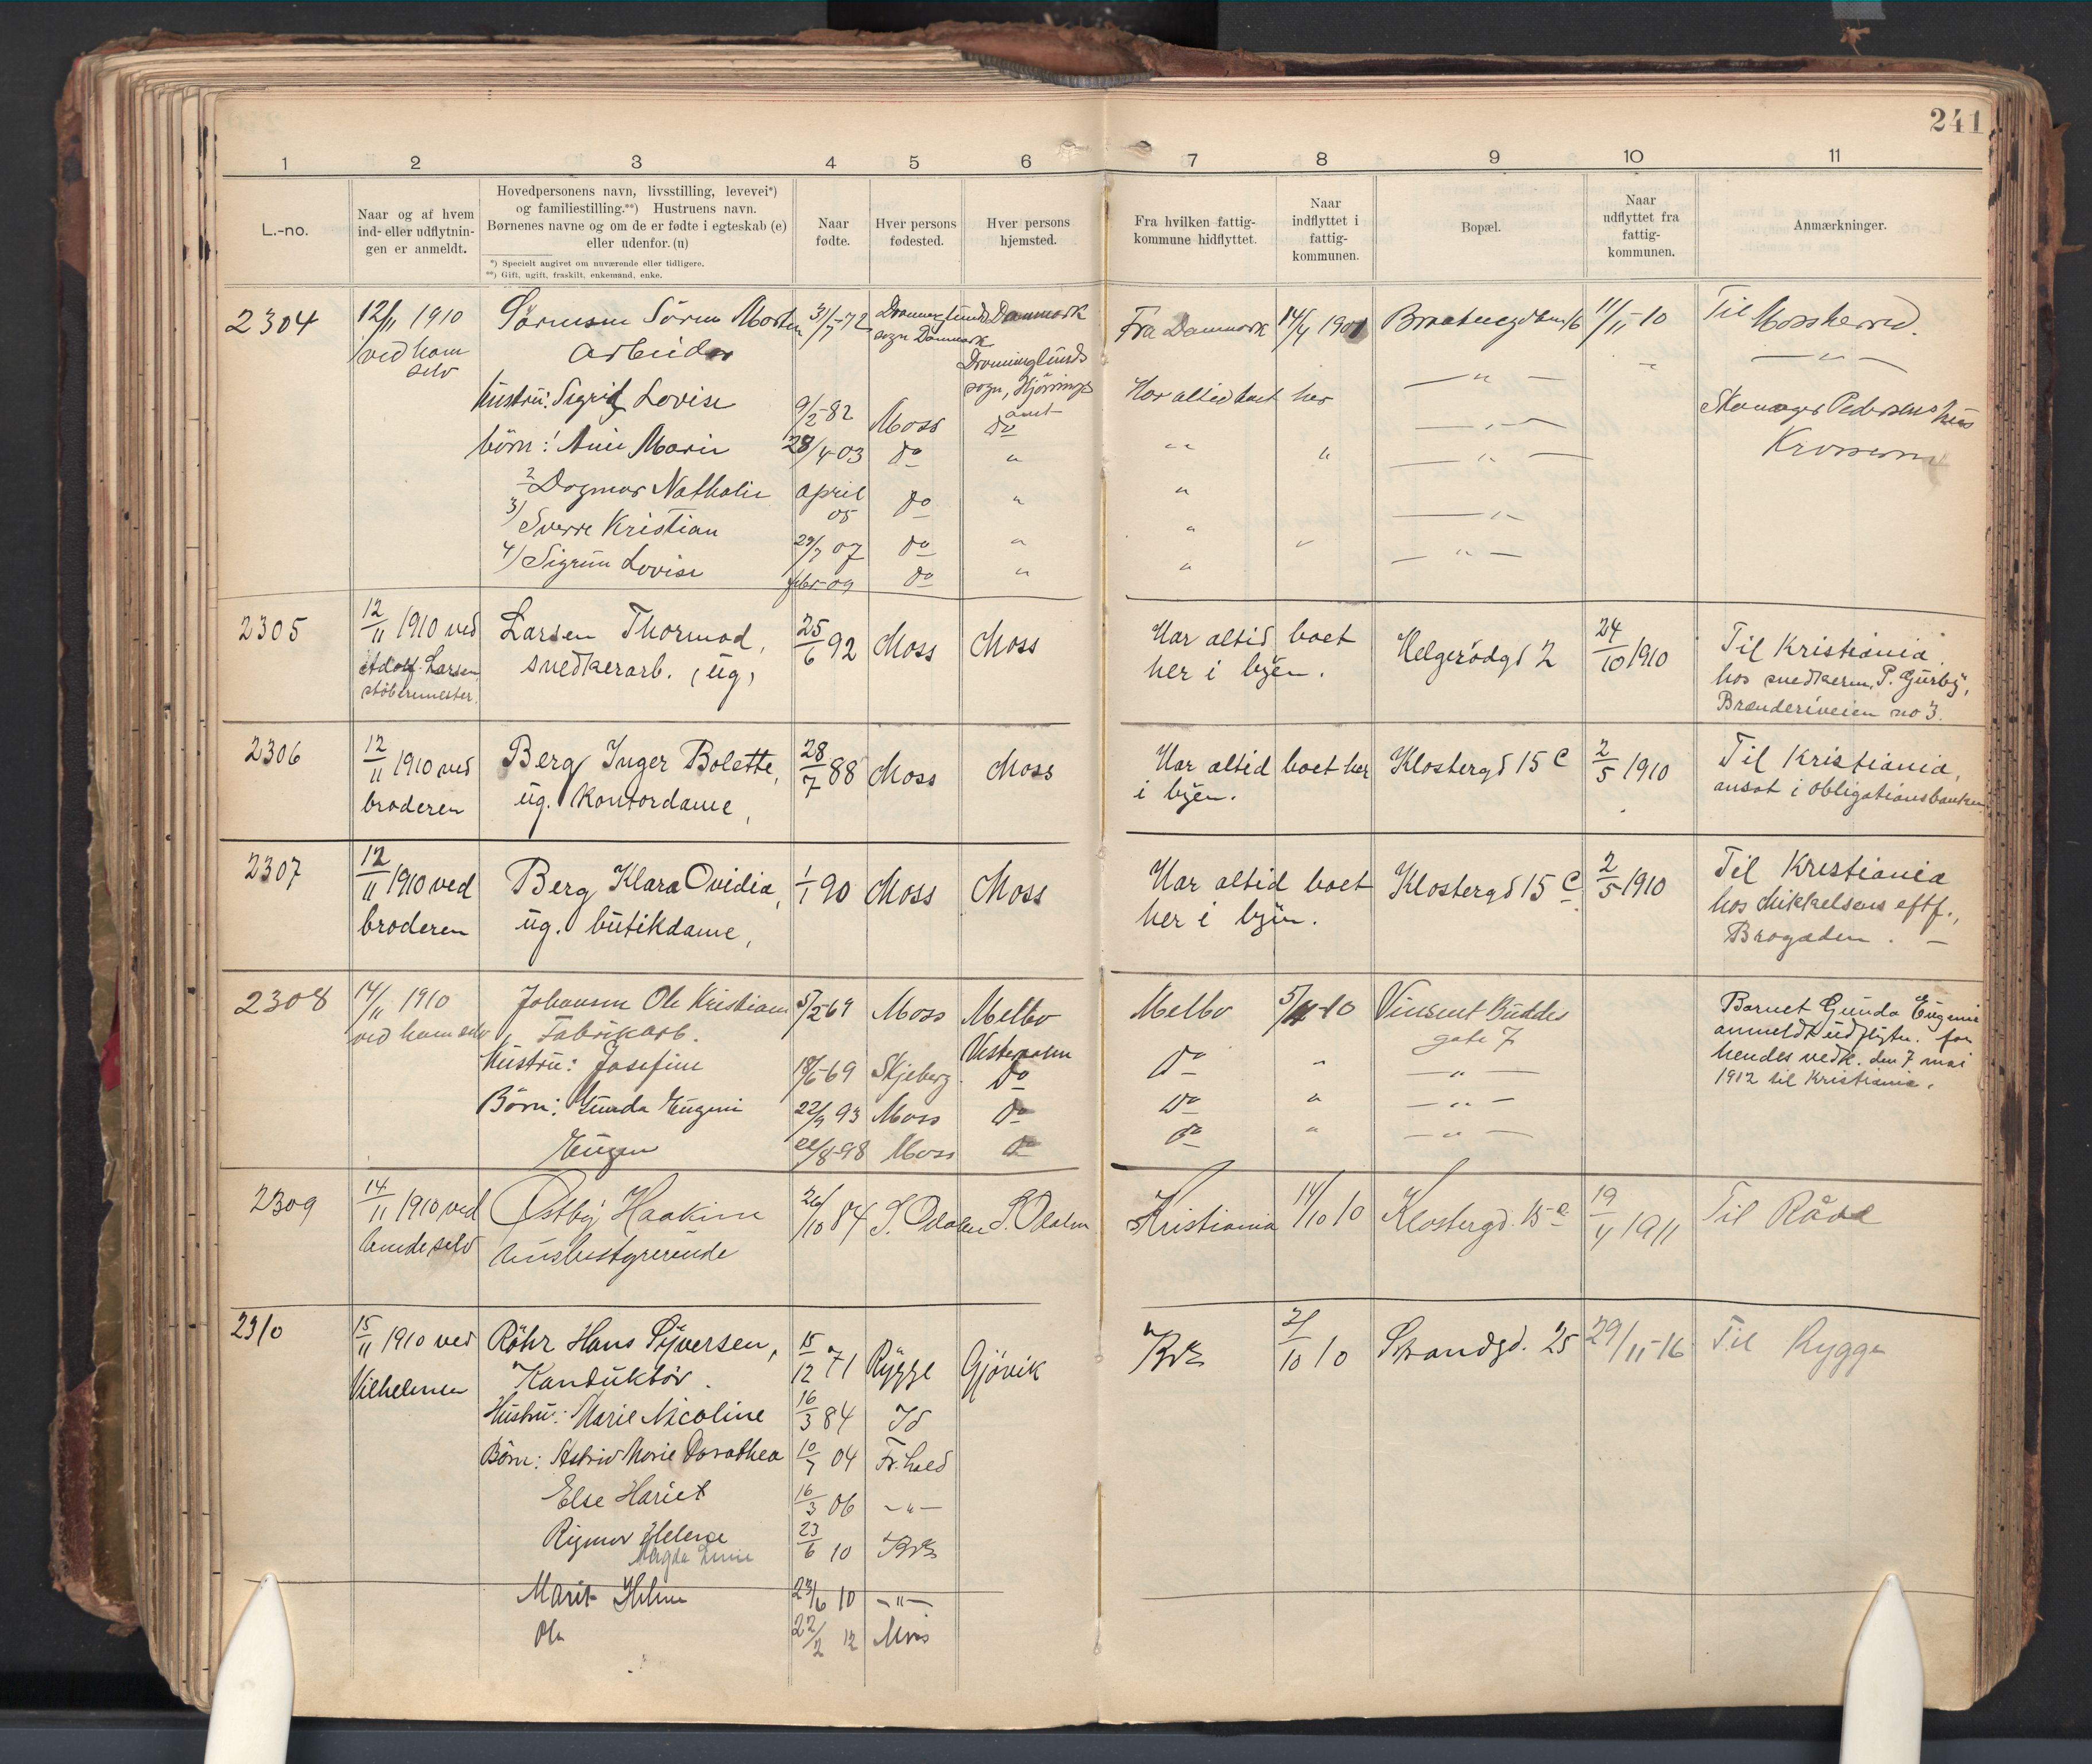 241
1 2 3 4 5 6 7 8 9 10 11
L.-no.
Naar og af hvem
ind- eller udflytnin-
gen er anmeldt.
Hovedpersonens navn, livsstilling, levevei*)
og familiestilling.**) Hustruens navn.
Børnenes navne og om de er fødte i egteskab (e)
eller udenfor. (u)
*) Specielt angivet om nuværende eller tidligere.
**) Gift, ugift, fraskilt, enkemand, enke.
Naar
fødte.
Hver persons
fødested.
Hver persons
hjemsted.
Fra hvilken fattig-
kommune hidflyttet.
Naar
indflyttet i
fattig-
kommunen.
Bopæl.
Naar
udflyttet fra
fattig-
kommunen.
Anmærkninger.
2304 12/11 1910 Sørensen Søren Morten 31/7-72 Dronninglunds Danmark Fra Danmark 14/4 1901 11/11-10 Til Moss herred.
ved ham Arbeider sogn Danmark Dronninglunds — " —
selv sogn, Hjørrings
Hustru: Sigrid Lovise 9/2-82 Moss amt do Har altid boet her — " —
børn: 1 Anne Marie 28/4-03 do " " " — " — Pedersens hus
2 Dagmar Nathalie april 05 do " " — " — Krosserne
3) Sverre Kristian 29/7 07 do " " " — " —
4) Sigrun Lovise febr-09 do " " — " —
2305 12/11 1910 ved Larsen Thormod, 25/6 92 Moss Moss Har altid boet Helgerødgd 2 24/10 1910 Til Kristiania
Adolf Larsen snedkerarb. (ug) her i byen. hos snedkerm. P. Gurby,
støbermester. Brænderiveien no 3.
2306 12/11 1910 ved Berg Inger Bolette, 28/7 88 Moss Moss Har altid boet her Klostergd 15 c 2/5 1910 Til Kristiania,
broderen ug. Kontordame, i byen. ansat i obligationsbanken
2307 12/11 1910 ved Berg Klara Ovidia, 1/1 90 Moss Moss Har altid boet Klostergd 15 c 2/5 1910 Til Kristiania
broderen ug. butikdame, her i byen. hos Mikkelsens eftf.,
Brogaden. —
2308 14/11 1910 Johansen Ole Kristian 5/2-69 Moss Melbo Melbo 5/11-10 Vincent Buddes Barnet Gunda Eugenie
ved ham selv Fabrikarb. Vesteraalen gate 7 anmeldt udflytn. for
Hustru: Josefine 18/6-69 Skjeberg do do " — " — hendes vedk. den 7 mai
Børn: Gunda Eugeni 22/9 93 Moss do do " — " — 1912 til Kristiania.
Eugen 22/8-98 Moss do do " — " —
2309 14/11 1910 ved Østby Haakine 26/10 84 S. Odalen S. Odalen Kristiania 14/10 10 Klostergd. 15 c 19/4 1911 Til Råde
hende selv husbestyrerinde
2310 15/11 1910 ved Röhr Hans Syversen, 15/12 71 Rygge Gjøvik 21/10 10 Strandgd. 25 29/11-16 Til Rygge
Vilhelmsen Konduktør.
Hustru: Marie Nicoline 16/3 84 Id
Børn: Astrid Marie Dorothea 10/7 04 Fr.hald
Else Hariet 16/3 06 — " —
Rigmor Helene 23/6 10
Magda
Marit 23/6 10 — " —
Ole 22/2 12 Moss